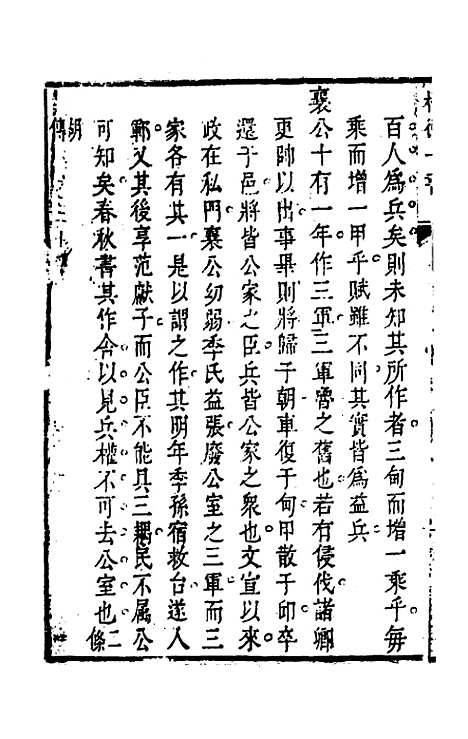 百人為兵矣則未知其所作者三甸而增一乘乎每
乘而增一甲乎賦雖不同其實皆為益兵
襄公十有一年作三軍三軍魯之舊也若有侵伐諸卿
更帥以出事畢則將歸于朝車復于甸甲散于邱卒
還于邑將皆公家之臣兵皆公家之衆也文宣以來
政在私門襄公幼弱季氏益張廢公室之三軍而三
家各有其一是以謂之作其明年季孫宿救台遂入
鄆又其後享范獻子而公臣不能具三耦民不属公
可知矣春秋書其作舍以見兵權不可去公室也二
條
胡
傳